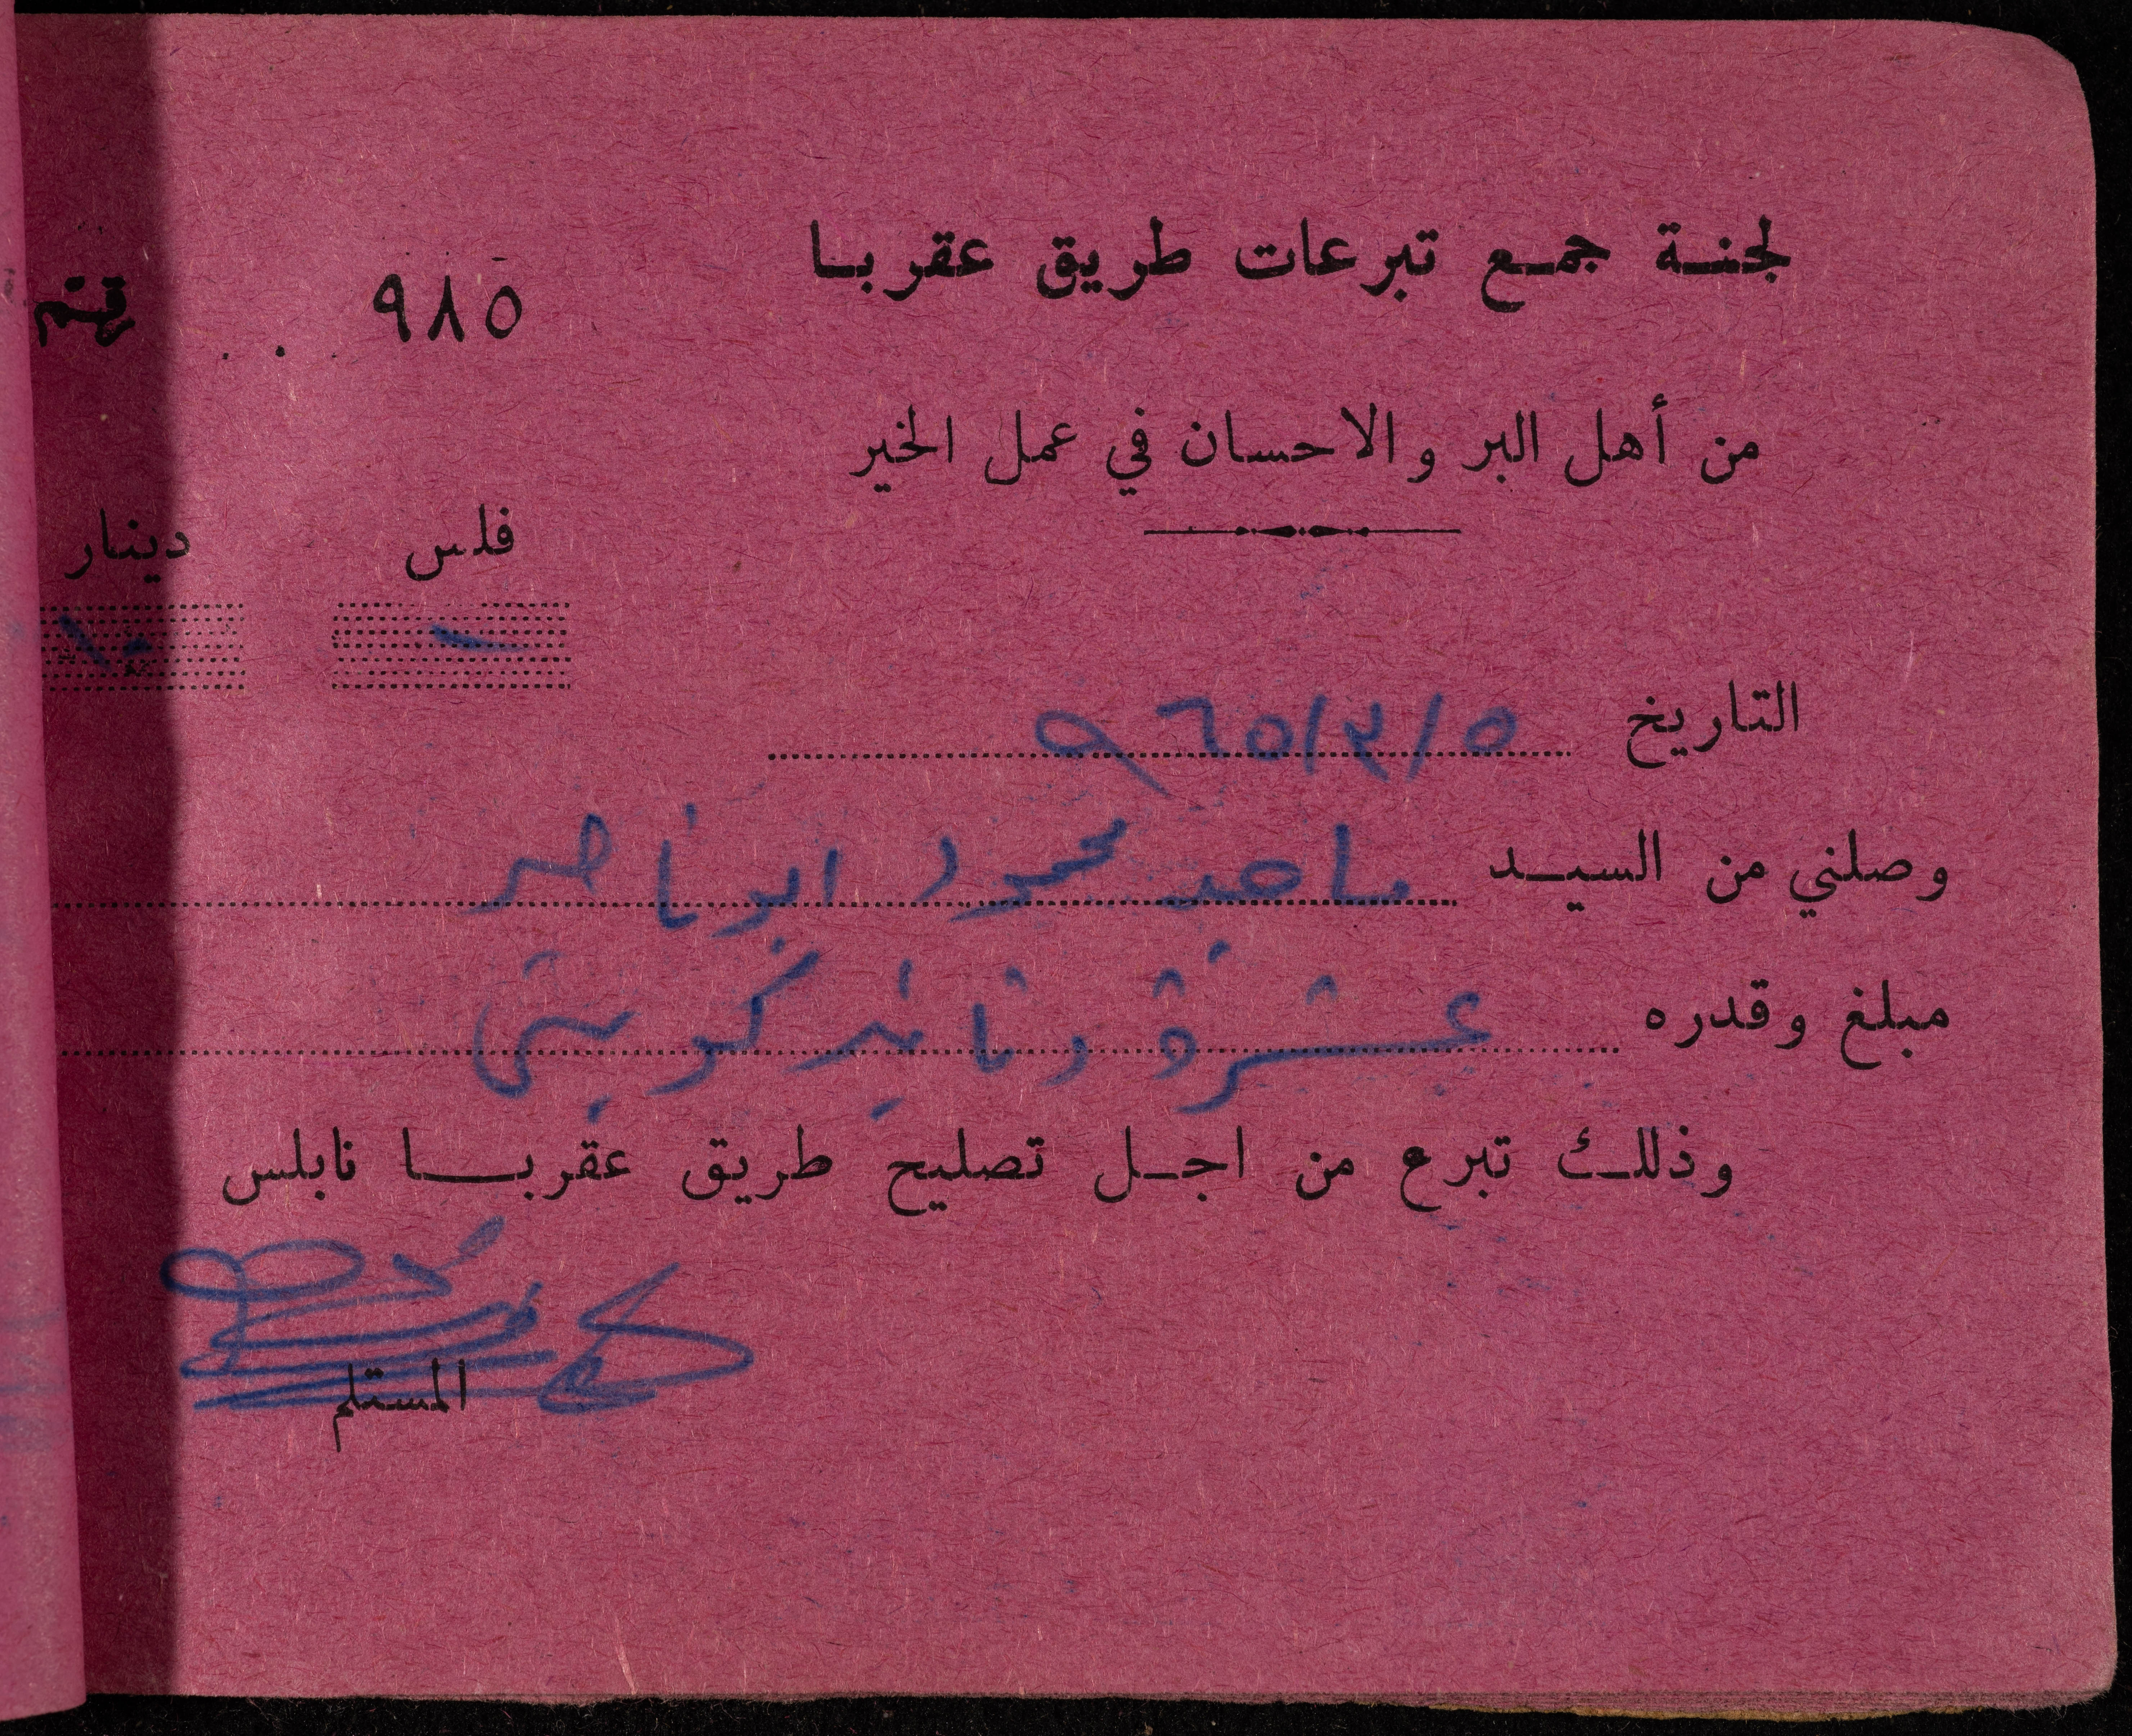 لجنة جمع تبرعات طريق عقربا
رقم ٩٨٥
من أهل البر والاحسان في عمل الخير
فلس دينار
— ١٠
التاريخ ٥/٣/٩٦٥
وصلني من السيد ماجد محمود ابو ناصر
مبلغ وقدره عشرة دنانير كويتي
وذلك تبرع من اجل تصليح طريق عقربا نابلس
المستلم